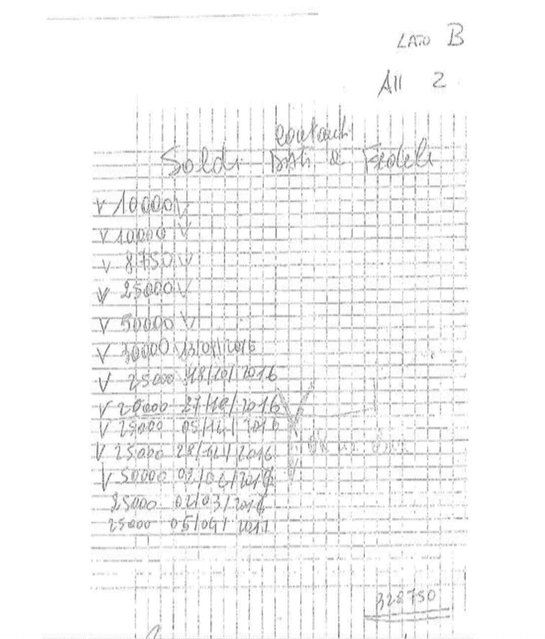 LATO B
All 2
contanti
Soldi Dati a Fedele
V 10000 V
V 10000 V
V 8.750 V
V 25000 V
V 50000 V
V 30000 13/09/2016
V 25000 18/10/2016
V 20000 27/10/2016
V 25000 05/12/2016
V 25000 28/12/2016
V 50000 02/02/2017
25000 02/03/2017
25000 05/04/2017
328750